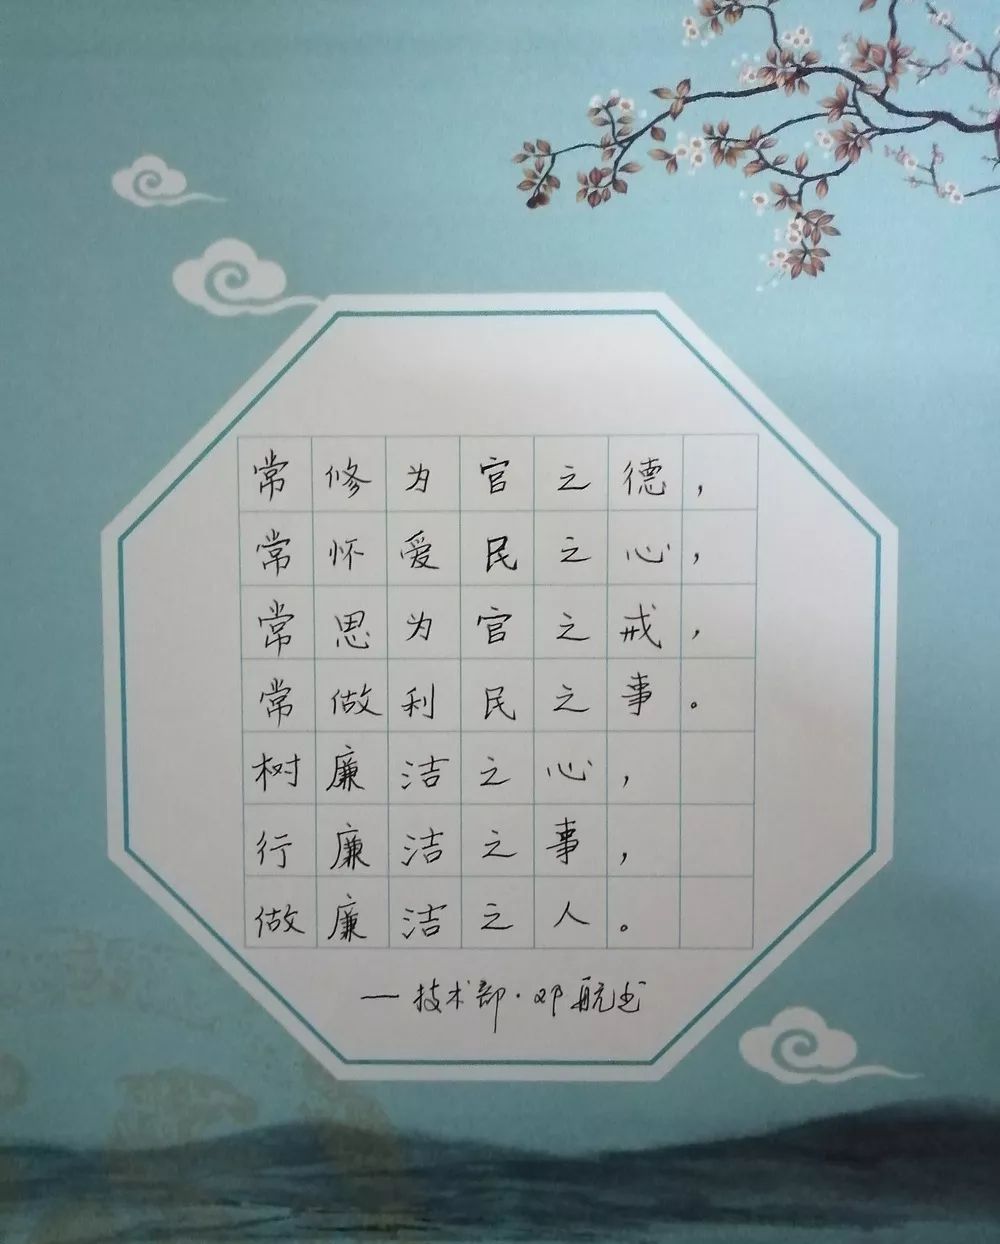 常修为官之德，
常怀爱民之心，
常思为官之戒，
常做利民之事。
树廉洁之心，
行廉洁之事，
做廉洁之人。
—技术部·邓航书